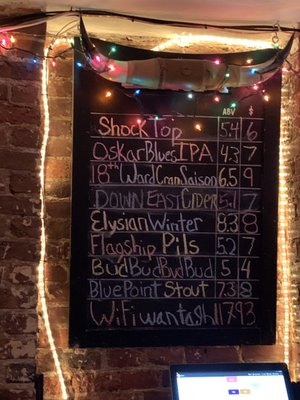 ABV $
Shock Top 5.4 6
Oskar Blues IPA 4.3 7
18th Ward Cran Saison 6.5 9
DOWN EAST CIDER 5.1 7
Elysian Winter 8.3 8
Flagship Pils 5.2 7
Bud Bud Bud Bud 5 4
Blue Point Stout 7.3 8
WiFi wantagh 11793